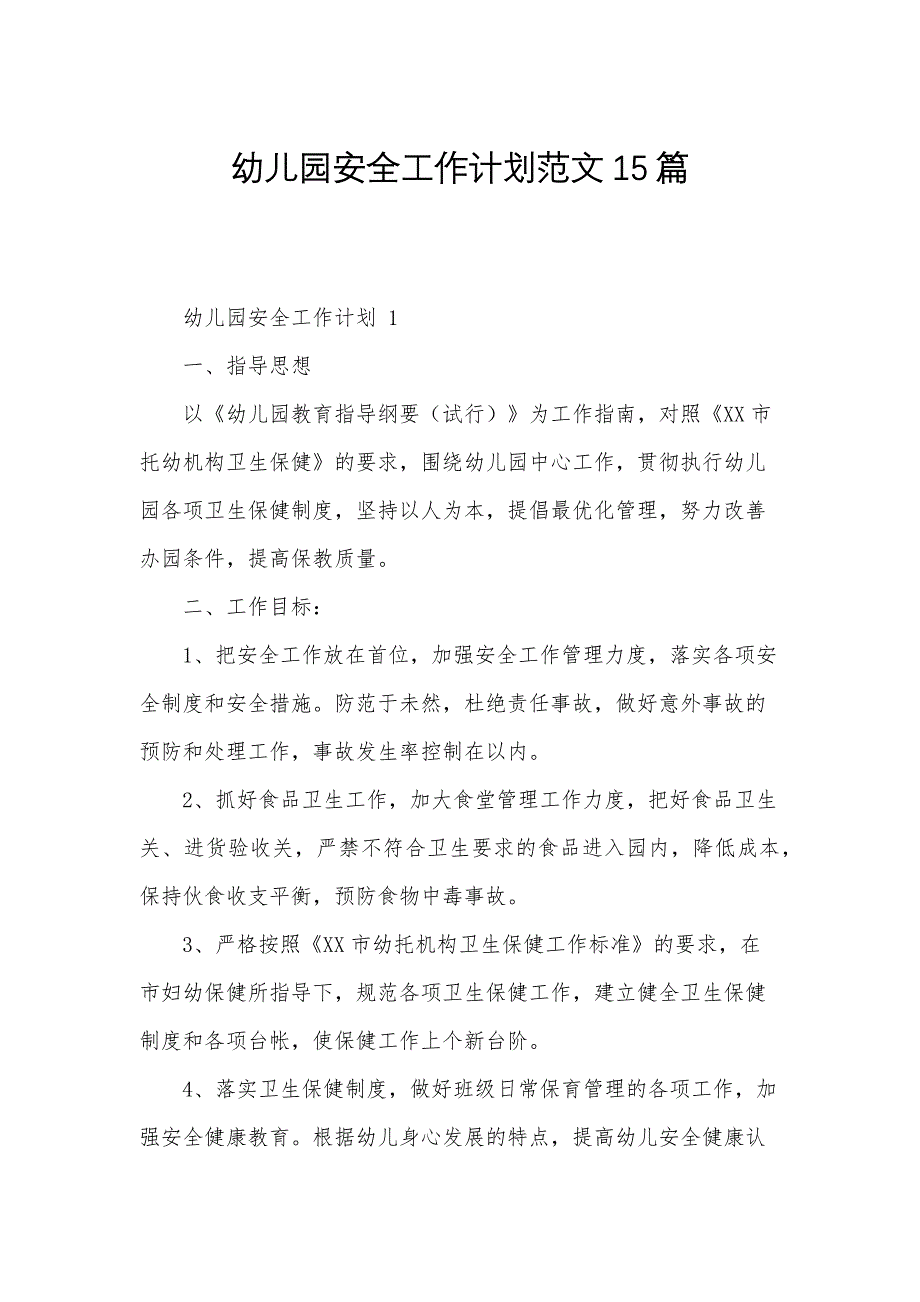 幼儿园安全工作计划范文15篇
幼儿园安全工作计划 1
一、指导思想
以《幼儿园教育指导纲要（试行）》为工作指南，对照《XX市
托幼机构卫生保健》的要求，围绕幼儿园中心工作，贯彻执行幼儿
园各项卫生保健制度，坚持以人为本，提倡最优化管理，努力改善
办园条件，提高保教质量。
二、工作目标：
1、把安全工作放在首位，加强安全工作管理力度，落实各项安
全制度和安全措施。防范于未然，杜绝责任事故，做好意外事故的
预防和处理工作，事故发生率控制在以内。
2、抓好食品卫生工作，加大食堂管理工作力度，把好食品卫生
关、进货验收关，严禁不符合卫生要求的食品进入园内，降低成本，
保持伙食收支平衡，预防食物中毒事故。
3、严格按照《XX市幼托机构卫生保健工作标准》的要求，在
市妇幼保健所指导下，规范各项卫生保健工作，建立健全卫生保健
制度和各项台帐，使保健工作上个新台阶。
4、落实卫生保健制度，做好班级日常保育管理的各项工作，加
强安全健康教育。根据幼儿身心发展的特点，提高幼儿安全健康认